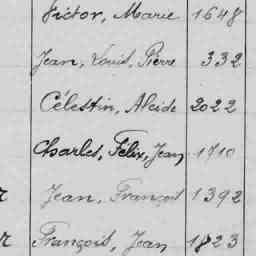 Victor, Marie 1648
Jean, Louis, Pierre 332
Célestin, Alcide 2022
Charles, Félix, Jean 1710
Jean, François 1392
François, Jean 1823